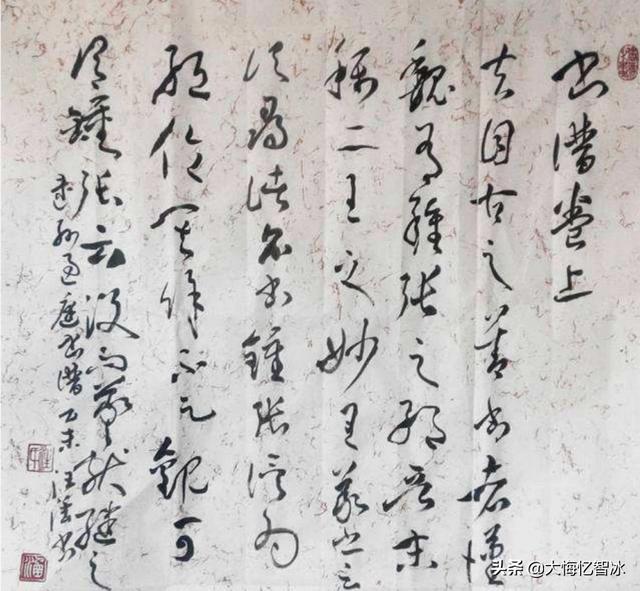 書譜卷上
夫自古之善書者漢
魏有鍾張之絕晉末
稱二王之妙王羲之云
頃尋諸名書鍾張信為
絕倫其餘不足觀可
謂鍾張云沒而羲獻繼之
孫過庭書譜 乙未
头条 @大悔忆智冰